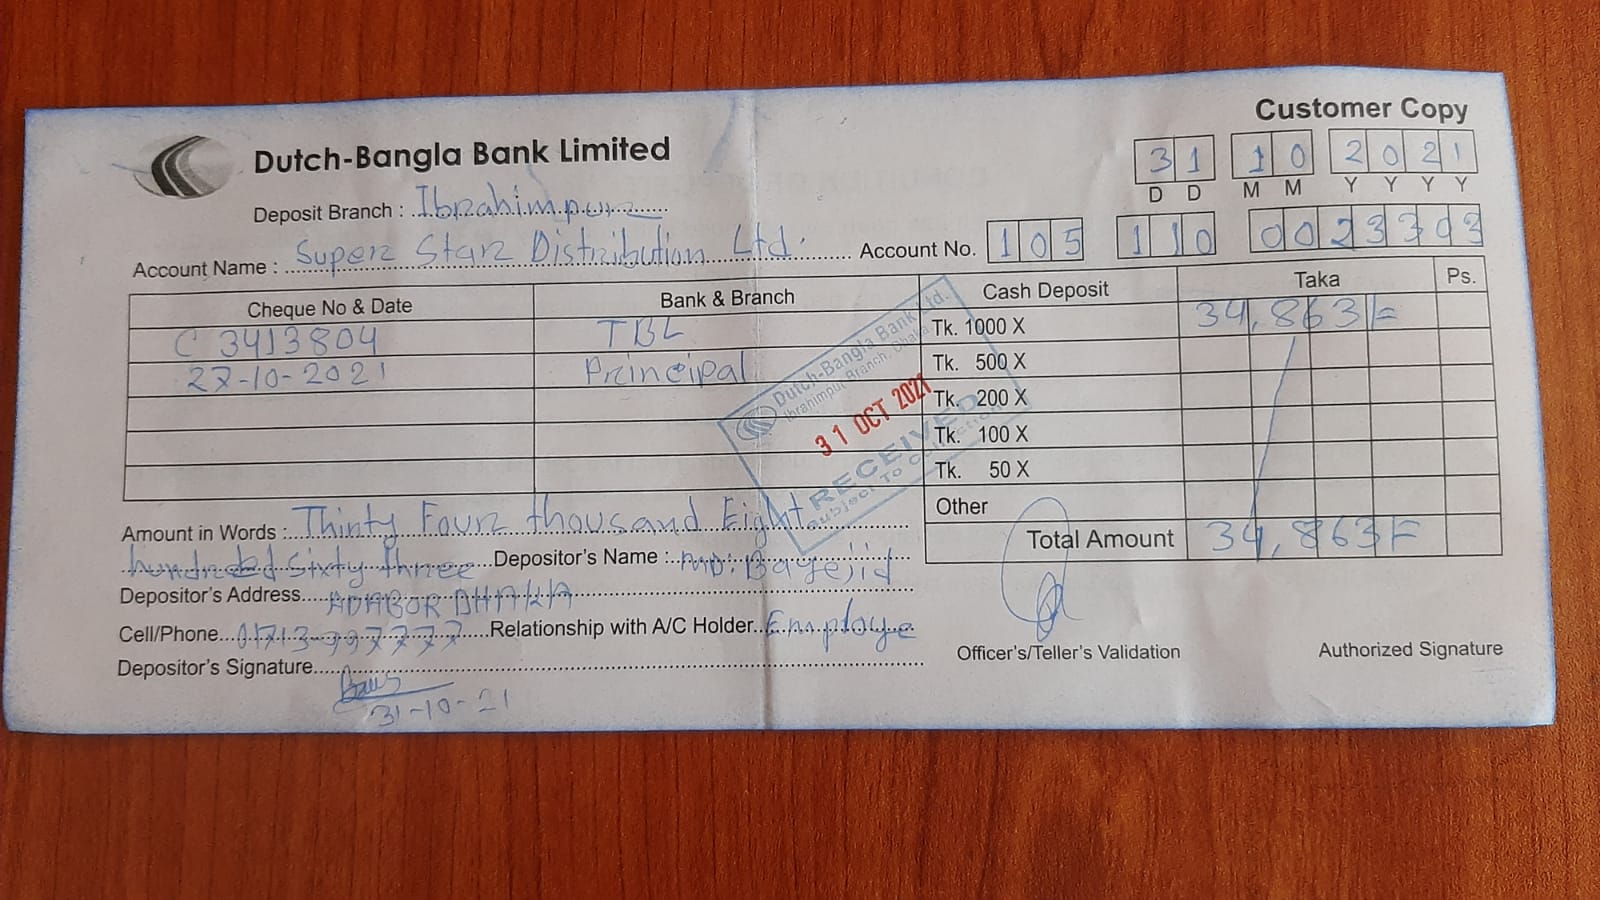 Customer Copy
Dutch-Bangla Bank Limited
31 10 2021
D D M M Y Y Y Y
Deposit Branch : Ibrahimpur
Account Name : Super Star Distribution Ltd. Account No. 105 110 0023303
Cheque No & Date Bank & Branch Cash Deposit Taka Ps.
C 3413804 TBL Tk. 1000 X 34,863/=
27-10-2021 Principal Tk. 500 X
Tk. 200 X
Tk. 100 X
Tk. 50 X
Other
Dutch-Bangla Bank Ltd.
Ibrahimpur Branch, Dhaka
31 OCT 2021
RECEIVED
Subject To Collection
Total Amount 34,863/=
Amount in Words : Thirty Four thousand Eight
hundred Sixty three Depositor's Name : MD. Bayejid
Depositor's Address ADABOR DHAKA
Cell/Phone 01713-997777 Relationship with A/C Holder Employe
Depositor's Signature
31-10-21
Officer's/Teller's Validation Authorized Signature